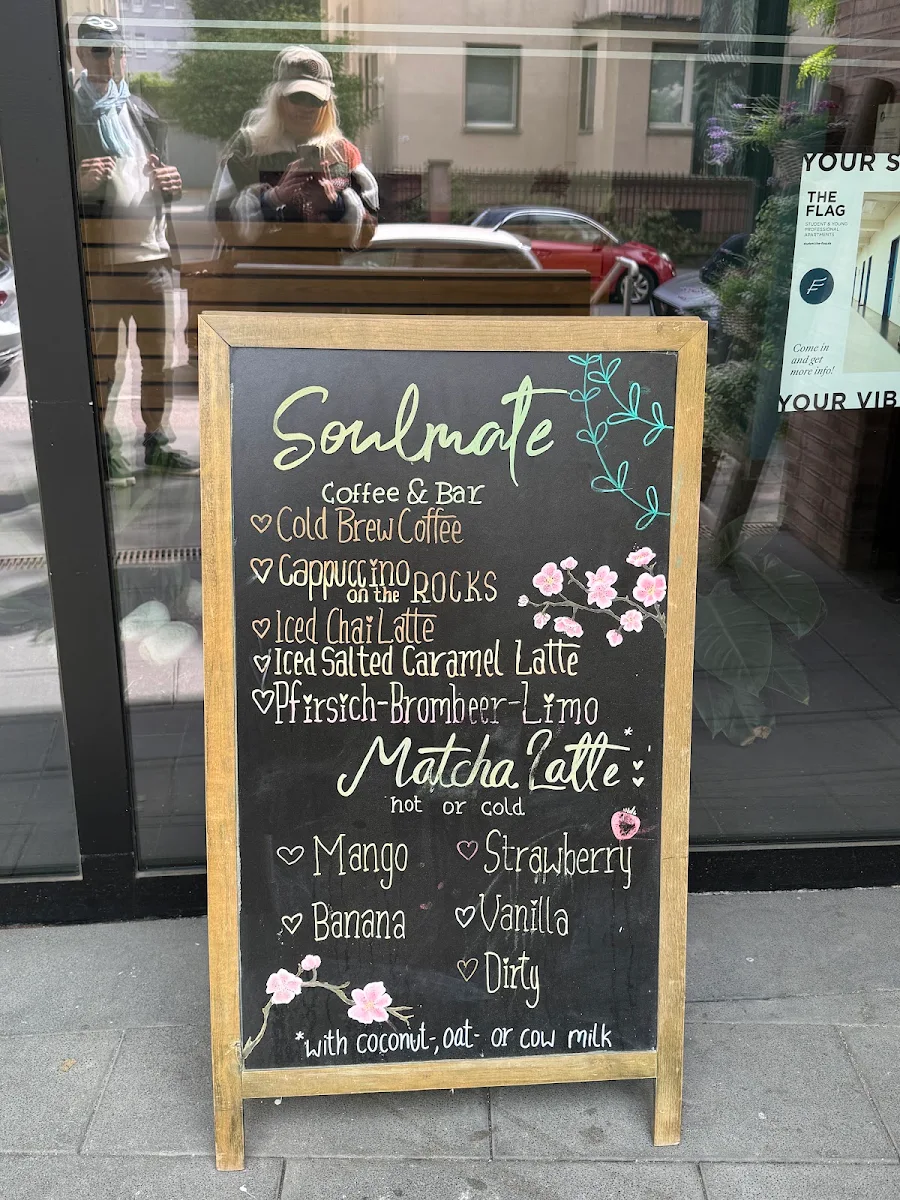 Soulmate
Coffee & Bar
Cold Brew Coffee
Cappuccino on the ROCKS
Iced Chai Latte
Iced Salted Caramel Latte
Pfirsich-Brombeer-Limo
Matcha Latte*
hot or cold
Mango
Strawberry
Banana
Vanilla
Dirty
*with coconut-, oat- or cow milk
YOUR S
THE
FLAG
STUDENT & YOUNG
PROFESSIONAL
APARTMENTS
F
Come in
and get
more info!
YOUR VIB